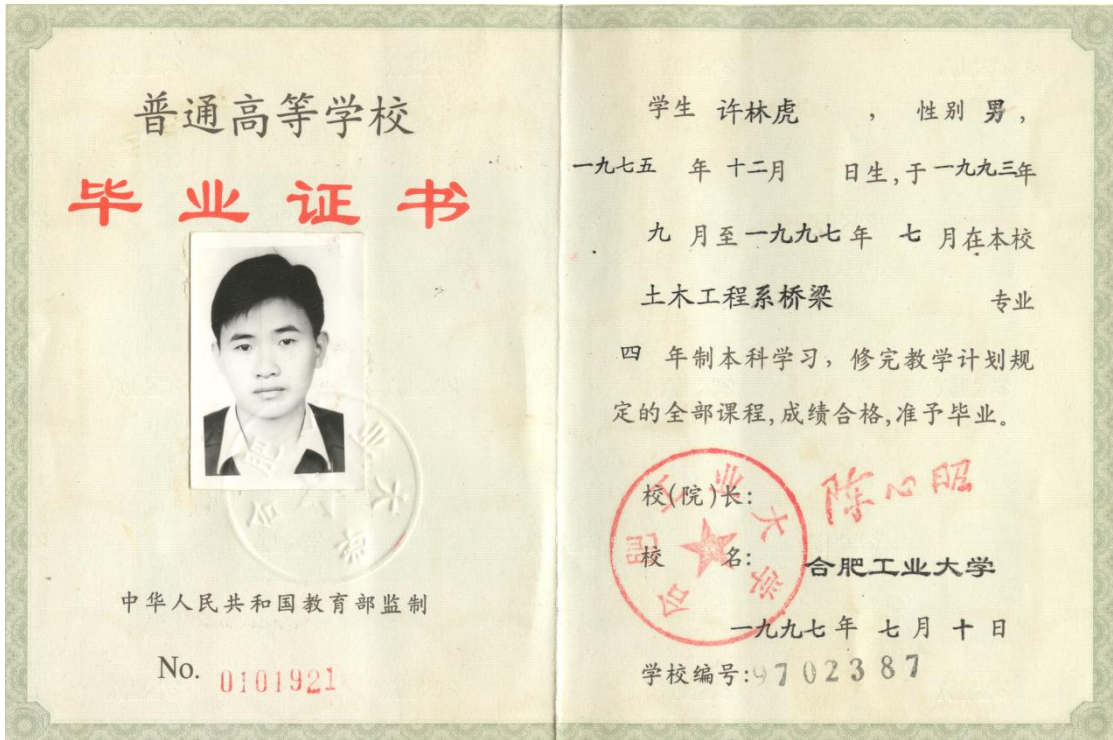 普通高等学校
毕业证书
合肥工业大学
中华人民共和国教育部监制
No. 0101921
学生 许林虎 , 性别 男,
一九七五 年 十二月 日生,于一九九三年
九 月至一九九七年 七 月在本校
土木工程系桥梁 专业
四 年制本科学习,修完教学计划规
定的全部课程,成绩合格,准予毕业。
校(院)长: 陈心昭
校 名: 合肥工业大学
合肥工业大学
一九九七年 七月 十 日
学校编号:9702387